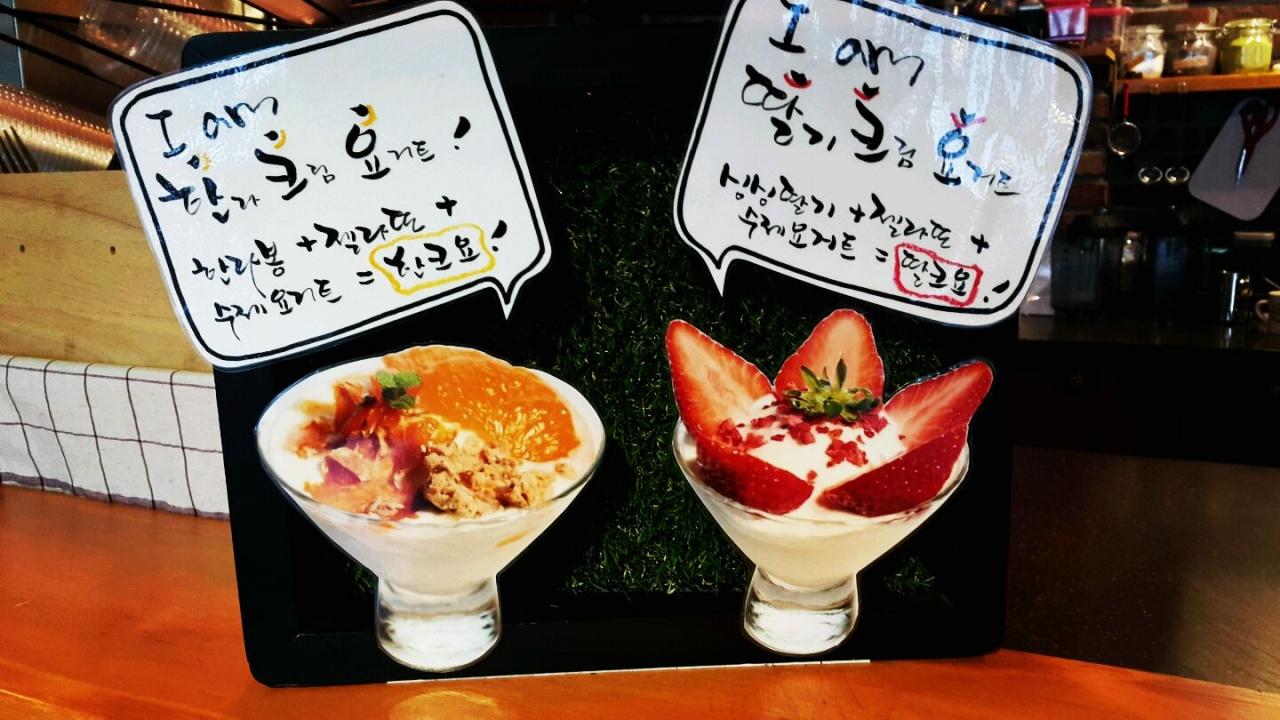 I am
한라 크림 요거트!
한라봉 + 젤라또 +
수제요거트 = 한크요!
I am
딸기 크림 요거트
싱싱딸기 + 젤라또 +
수제요거트 = 딸크요!